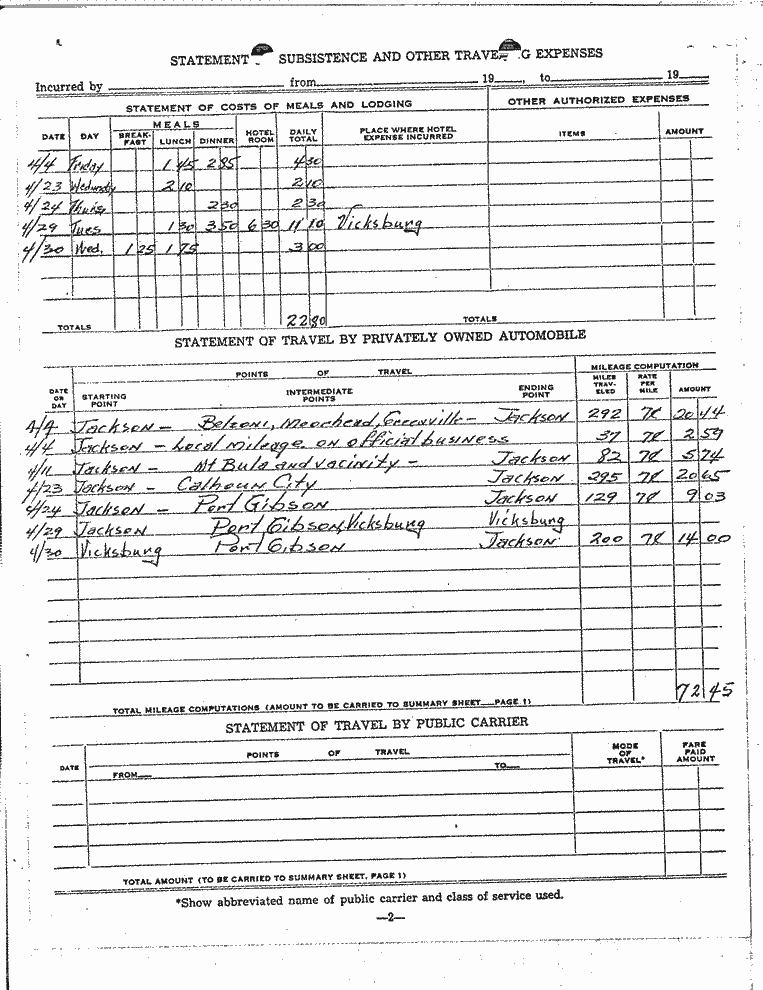 STATEMENT SUBSISTENCE AND OTHER TRAVE G EXPENSES
Incurred by from 19 , to 19
STATEMENT OF COSTS OF MEALS AND LODGING OTHER AUTHORIZED EXPENSES
DATE DAY MEALS BREAK-FAST LUNCH DINNER HOTEL ROOM DAILY TOTAL PLACE WHERE HOTEL EXPENSE INCURRED ITEMS AMOUNT
4/4 Friday 1 45 2 85 4 30
4/23 Wednesday 2 10 2 10
4/24 Thurs 2 30 2 30
4/29 Tues 1 30 3 50 6 30 11 10 Vicksburg
4/30 Wed. 1 25 1 75 3 00
TOTALS 22 80 TOTALS
STATEMENT OF TRAVEL BY PRIVATELY OWNED AUTOMOBILE
POINTS OF TRAVEL MILEAGE COMPUTATION
DATE OR DAY STARTING POINT INTERMEDIATE POINTS ENDING POINT MILES TRAV-ELED RATE PER MILE AMOUNT
4/4 Jackson - Belzoni, Moorhead, Greenville - Jackson 292 7¢ 20 44
4/4 Jackson - Local mileage on official business 37 7¢ 2 59
4/11 Jackson - Mt Bula and vacinity - Jackson 82 7¢ 5 74
4/23 Jackson - Calhoun City Jackson 295 7¢ 20 65
4/24 Jackson - Port Gibson Jackson 129 7¢ 9 03
4/29 Jackson Port Gibson, Vicksburg Vicksburg
4/30 Vicksburg Port Gibson Jackson 200 7¢ 14 00
72 45
TOTAL MILEAGE COMPUTATIONS (AMOUNT TO BE CARRIED TO SUMMARY SHEET PAGE 1)
STATEMENT OF TRAVEL BY PUBLIC CARRIER
DATE POINTS OF TRAVEL MODE OF TRAVEL* FARE PAID AMOUNT
FROM TO
TOTAL AMOUNT (TO BE CARRIED TO SUMMARY SHEET, PAGE 1)
*Show abbreviated name of public carrier and class of service used.
—2—